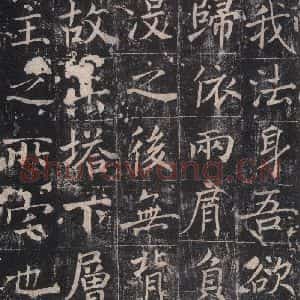 我法身吾欲
歸依兩肩負
没之後無背
故塔下層
主之所也
Shufawang.CN